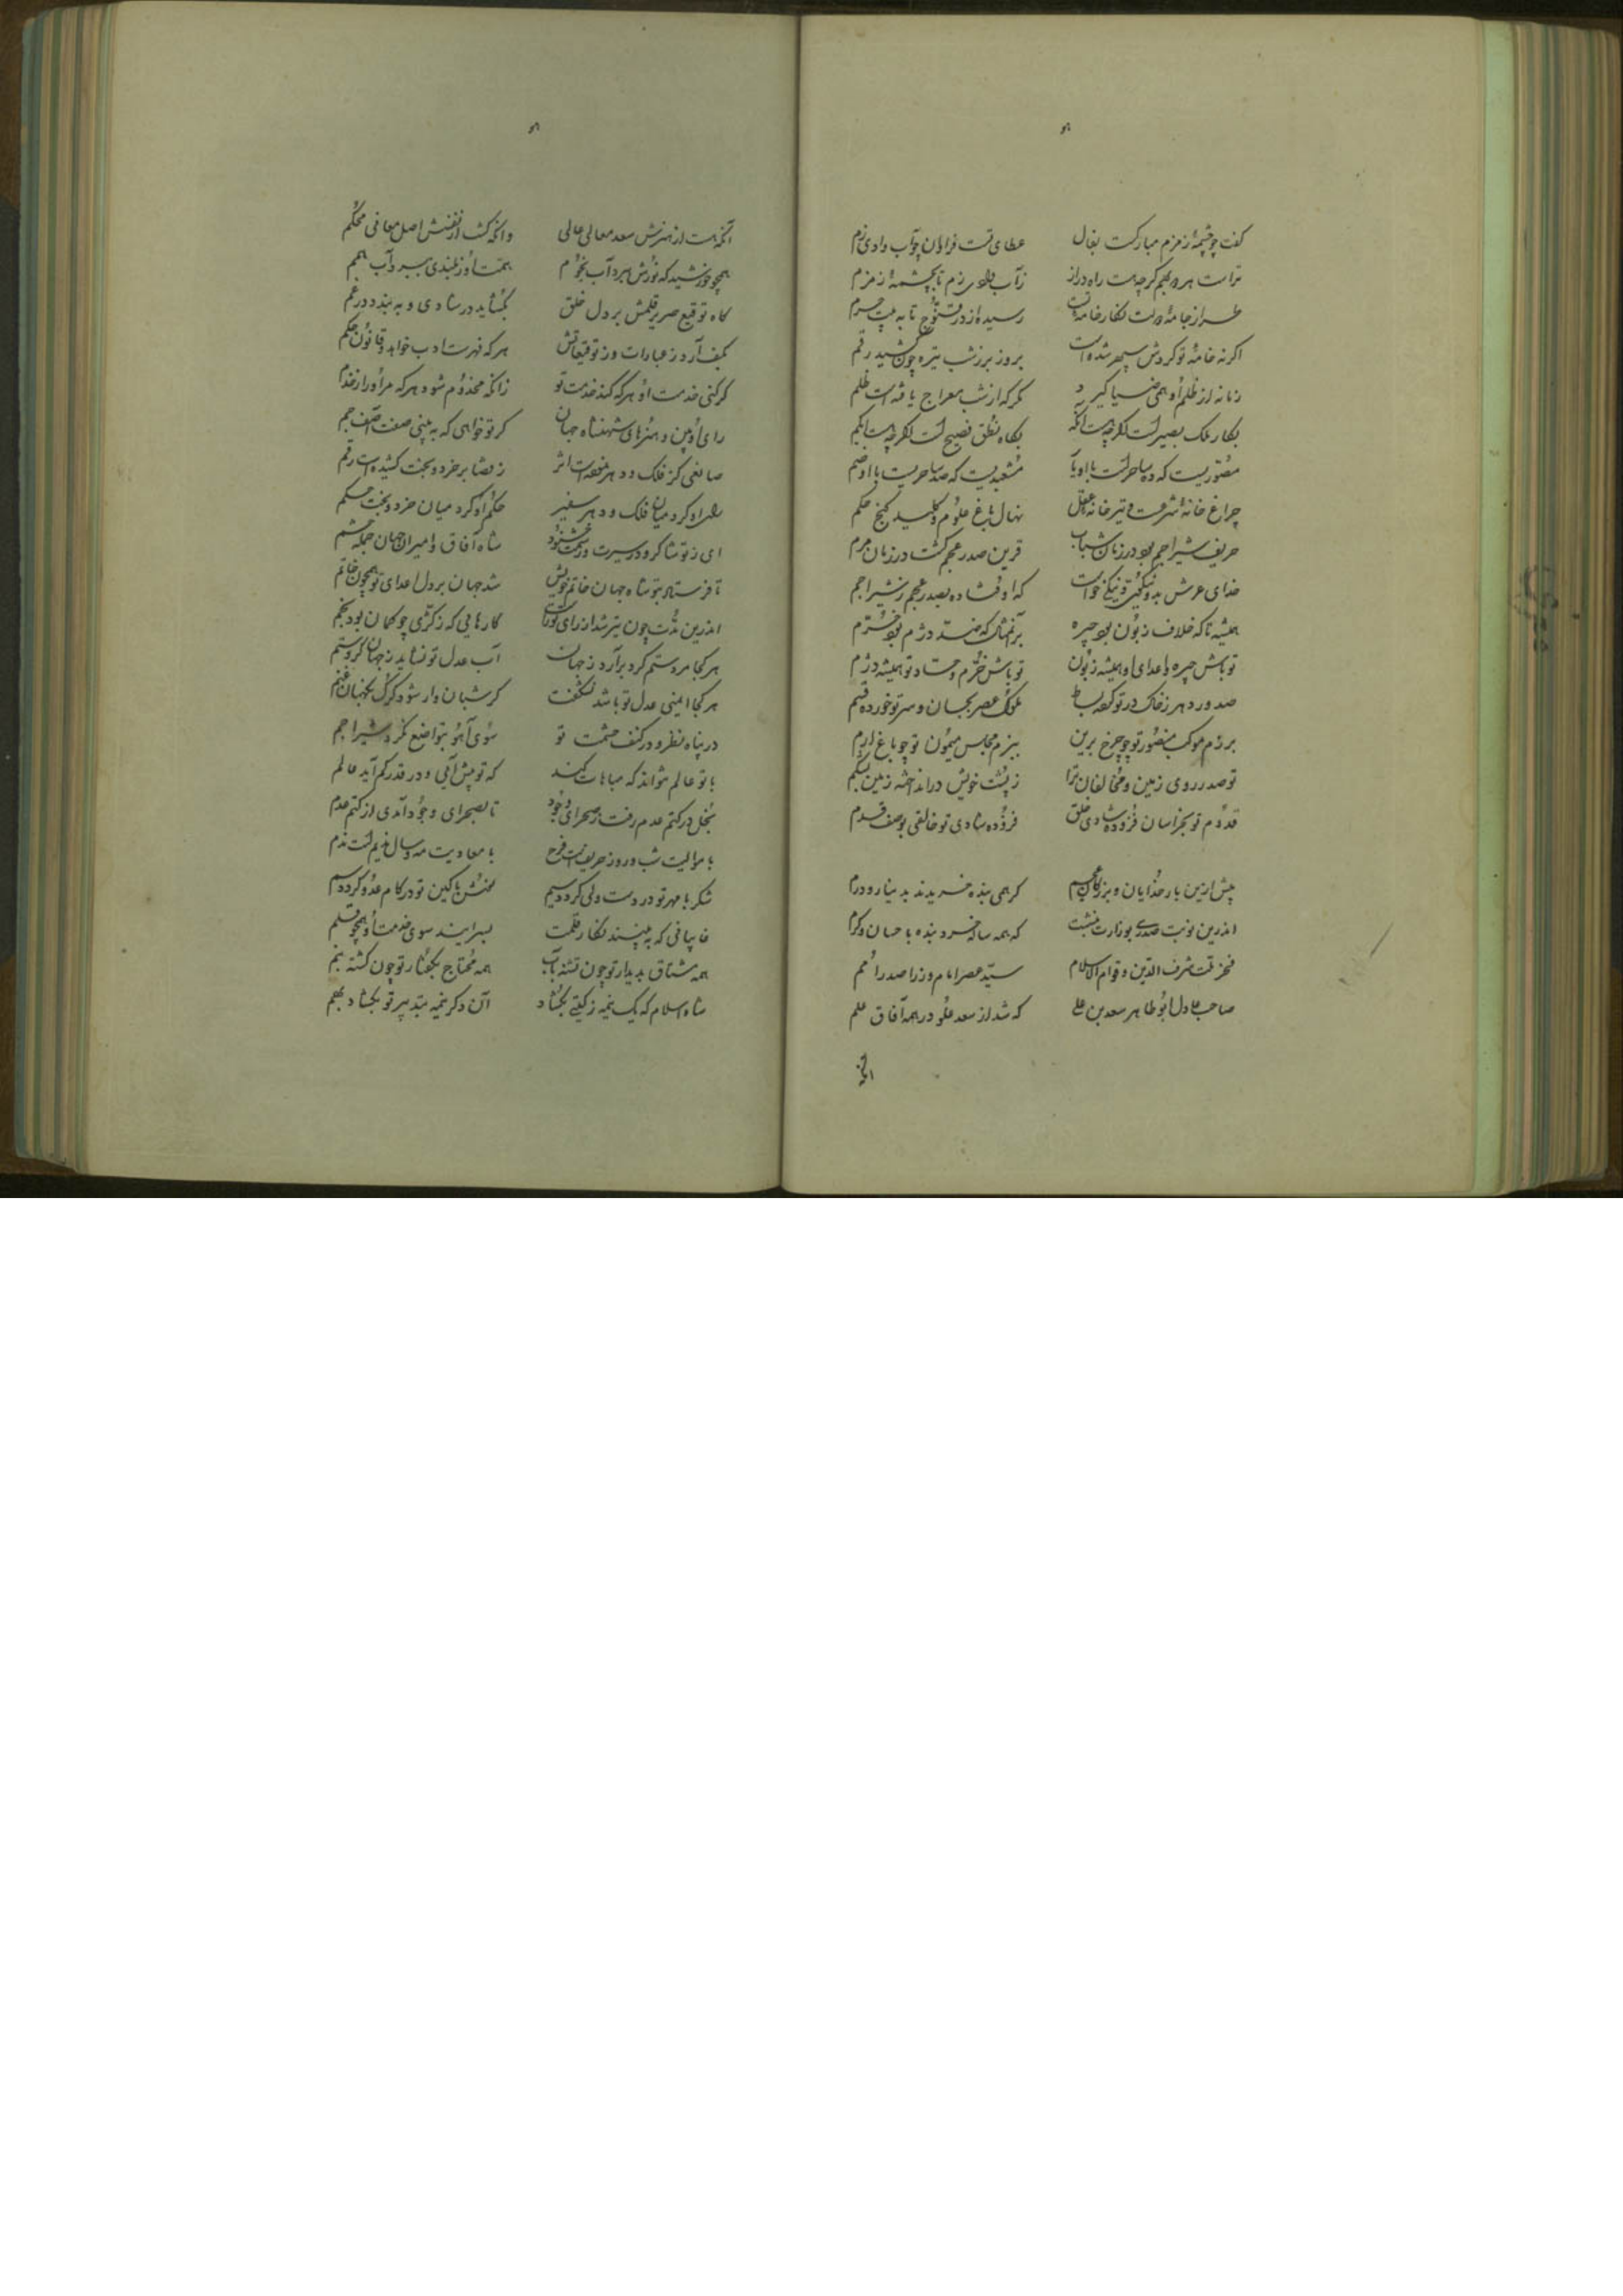 کفت چو چشمهٔ زمزم مبارکست بفال عطای تست فراوان چو آب وادی زم
تراست هر دو بهم کرچه هست راه دراز زآب وادی زم تا بچشمهٔ زمزم
طراز جامهٔ دولت نکار خامهٔ تست رسیده از در تا به بیت حرم
اکر نه خامهٔ تو کردش سپهر شده است بروز برزشب تیره چون کشید رقم
زمانه از ظلم او همی ضیا کیرد مکر که از شب معراج یافته است ظلم
بکار ملک بصیرست اکرچه هست اکمه بکاه نطق فصیح است اکرچه هست ابکم
مصوریست که ده ساحرست با او یا مشعبدیست که صد ساحریست با او ضم
چراغ خانهٔ شرعست و تیر خانهٔ عقل نهال باغ علوم و کلید کنج حکم
حریف شیر اجم بود در زمان شباب قرین صدر عجم کشت در زمان هرم
خدای عرش بدو نیکوئی و نیکی خواست که اوفتاده بصدر عجم ز شیر اجم
همیشه تا که خلاف زبون بود چیره بر آنمثال که ضد دژم بود خرم
تو باش چیره و اعدای او همیشه زبون تو باش خرم و حساد تو همیشه دژم
صدور دهر زخاک در تو کرده بساط ملوک عصر بجان و سر تو خورده قسم
برزم موکب منصور تو چو چرخ برین ببزم مجلس میمون تو چو باغ ارم
تو صدر روی زمین و مخالفان ترا ز پشت خویش درانداخته زمین بشکم
قدوم تو بخراسان فزوده شادی خلق فزوده شادی تو خالقی بوصف قدم
پیش ازین بار خدایان و بزرکان عجم کر همی بنده خریدند بدینار و درم
اندرین نوبت صدری بوزارت بنشست که همه ساله خرد بنده باحسان و کرم
فخر ملت شرف الدین و قوام الاسلام سید عصر امام وزرا صدر امم
صاحب عادل ابو طاهر سعد بن علی که شد از سعد علو در همه آفاق علم
آنکه
آنکه هست از هنرش سعد معالی عالی وانکه کشت از نفسش اصل معافی محکم
همچو خورشید که نورش ببرد آب نجوم همت او ز بلندی ببرد آب همم
کاه توقیع صریر قلمش بر دل خلق بکشاید در شادی و به بندد در غم
بکف آرد ز عبارات و ز توقیعاتش هر که فهرست ادب خواهد و قانون حکم
کر کنی خدمت او هر که کند خدمت تو زانکه مخدوم شود هر که مر او را ز خدم
رای او بین و هنرهای شهنشاه جهان کر تو خواهی که به بینی صفت آصف جم
صانعی کز فلک و دهر منفعت اثر ز قضا بر خرد و بخت کشیده است رقم
رای او کرد میان فلک و دهر سفیر حکم او کرد میان خرد و بخت حکم
ای ز تو شاکر و در سیرت و رسمت خشنود شاه آفاق و امیران جهان جمله حشم
تا فرستاد بتو شاه جهان خاتم خویش شد جهان بر دل اعدای تو همچون خاتم
اندرین مدت چون تیر شد از رای تو راست کارهایی که ز کژی چو کمان بود بخم
هر کجا مرد ستم کرد برآرد ز جهان آب عدل تو نشاید ز جهان کرد ستم
هر کجا ایمنی عدل تو باشد نشکفت کر شبان وار شود کرک نکهبان غنم
در پناه نظر و در کنف حشمت تو سوی آهو بتواضع نکرد شیر اجم
با تو عالم نتواند که مباهات کند که تو بیش آئی و در قدر کم آید عالم
بخل در کتم عدم رفت ز صحرای وجود تا بصحرای وجود آمدی از کتم عدم
با موالیت شب و روز حریفست فرح با معادیت مه و سال ندیم است ندم
شکر با مهر تو در دست ولی کردد سیم نعمتش با کین تو در کام عدو کردد سم
قابیانی که به بینند نکار قلمت بسر آیند سوی خدمت او همچو قلم
همه مشتاق بدیدار تو چون تشنه بآب همه محتاج بکفتار تو چون کشته بنم
شاه اسلام که یک نیمه ز کیتی بکشاد آن دکر نیمه بتدبیر تو بکشاد بهم